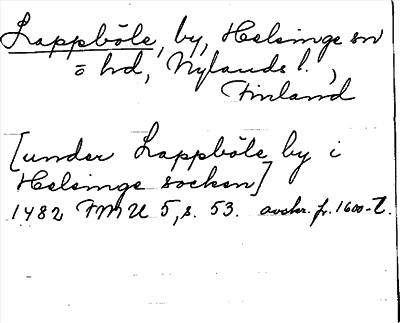 Lappböle, by, Helsinge sn
o hd, Nylands l.,
Finland
[under Lappböle by i
Helsinge socken]
1482 FMU 5, s. 53. avskr. fr. 1600-t.